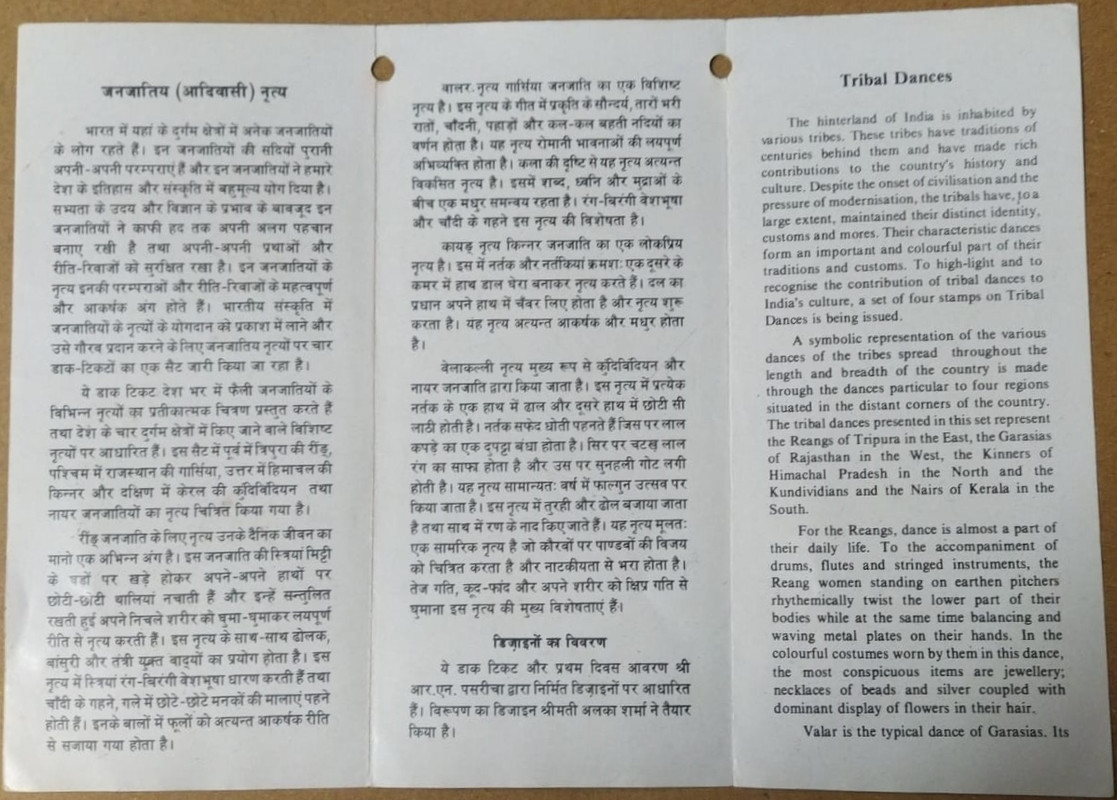 जनजातिय (आदिवासी) नृत्य
भारत में यहां के दुर्गम क्षेत्रों में अनेक जनजातियों
के लोग रहते हैं। इन जनजातियों की सदियों पुरानी
अपनी-अपनी परम्पराएं हैं और इन जनजातियों ने हमारे
देश के इतिहास और संस्कृति में बहुमूल्य योग दिया है।
सभ्यता के उदय और विज्ञान के प्रभाव के बावजूद इन
जनजातियों ने काफी हद तक अपनी अलग पहचान
बनाए रखी है तथा अपनी-अपनी प्रथाओं और
रीति-रिवाजों को सुरक्षित रखा है। इन जनजातियों के
नृत्य इनकी परम्पराओं और रीति-रिवाजों के महत्वपूर्ण
और आकर्षक अंग होते हैं। भारतीय संस्कृति में
जनजातियों के नृत्यों के योगदान को प्रकाश में लाने और
उसे गौरव प्रदान करने के लिए जनजातिय नृत्यों पर चार
डाक-टिकटों का एक सैट जारी किया जा रहा है।
ये डाक टिकट देश भर में फैली जनजातियों के
विभिन्न नृत्यों का प्रतीकात्मक चित्रण प्रस्तुत करते हैं
तथा देश के चार दुर्गम क्षेत्रों में किए जाने वाले विशिष्ट
नृत्यों पर आधारित हैं। इस सैट में पूर्व में त्रिपुरा की रींङ्,
पश्चिम में राजस्थान की गार्सिया, उत्तर में हिमाचल की
किन्नर और दक्षिण में केरल की कुंदिविदियन तथा
नायर जनजातियों का नृत्य चित्रित किया गया है।
रींङ् जनजाति के लिए नृत्य उनके दैनिक जीवन का
मानो एक अभिन्न अंग है। इस जनजाति की स्त्रियां मिट्टी
के घड़ों पर खड़े होकर अपने-अपने हाथों पर
छोटी-छोटी थालियां नचाती हैं और इन्हें सन्तुलित
रखती हुई अपने निचले शरीर को घुमा-घुमाकर लयपूर्ण
रीति से नृत्य करती हैं। इस नृत्य के साथ-साथ ढोलक,
बांसुरी और तंत्री युक्त वाद्यों का प्रयोग होता है। इस
नृत्य में स्त्रियां रंग-बिरंगी वेशभूषा धारण करती हैं तथा
चाँदी के गहने, गले में छोटे-छोटे मनकों की मालाएं पहने
होती हैं। इनके बालों में फूलों को अत्यन्त आकर्षक रीति
से सजाया गया होता है।
वालर नृत्य गार्सिया जनजाति का एक विशिष्ट
नृत्य है। इस नृत्य के गीत में प्रकृति के सौन्दर्य, तारों भरी
रातों, चाँदनी, पहाड़ों और कल-कल बहती नदियों का
वर्णन होता है। यह नृत्य रोमानी भावनाओं की लयपूर्ण
अभिव्यक्ति होता है। कला की दृष्टि से यह नृत्य अत्यन्त
विकसित नृत्य है। इसमें शब्द, ध्वनि और मुद्राओं के
बीच एक मधुर समन्वय रहता है। रंग-बिरंगी वेशभूषा
और चाँदी के गहने इस नृत्य की विशेषता है।
कायङ् नृत्य किन्नर जनजाति का एक लोकप्रिय
नृत्य है। इस में नर्तक और नर्तकियां क्रमशः एक दूसरे के
कमर में हाथ डाल घेरा बनाकर नृत्य करते हैं। दल का
प्रधान अपने हाथ में चँवर लिए होता है और नृत्य शुरू
करता है। यह नृत्य अत्यन्त आकर्षक और मधुर होता
है।
वेलाकल्ली नृत्य मुख्य रूप से कुंदिविदियन और
नायर जनजाति द्वारा किया जाता है। इस नृत्य में प्रत्येक
नर्तक के एक हाथ में ढाल और दूसरे हाथ में छोटी सी
लाठी होती है। नर्तक सफेद धोती पहनते हैं जिस पर लाल
कपड़े का एक दुपट्टा बंधा होता है। सिर पर चटख़ लाल
रंग का साफा होता है और उस पर सुनहली गोट लगी
होती है। यह नृत्य सामान्यतः वर्ष में फाल्गुन उत्सव पर
किया जाता है। इस नृत्य में तुरही और ढोल बजाया जाता
है तथा साथ में रण के नाद किए जाते हैं। यह नृत्य मूलतः
एक सामरिक नृत्य है जो कौरवों पर पाण्डवों की विजय
को चित्रित करता है और नाटकीयता से भरा होता है।
तेज गति, कूद-फांद और अपने शरीर को क्षिप्र गति से
घुमाना इस नृत्य की मुख्य विशेषताएं हैं।
डिज़ाइनों का विवरण
ये डाक टिकट और प्रथम दिवस आवरण श्री
आर.एन. पसरीचा द्वारा निर्मित डिज़ाइनों पर आधारित
हैं। विरूपण का डिजाइन श्रीमती अलका शर्मा ने तैयार
किया है।
Tribal Dances
The hinterland of India is inhabited by
various tribes. These tribes have traditions of
centuries behind them and have made rich
contributions to the country's history and
culture. Despite the onset of civilisation and the
pressure of modernisation, the tribals have, to a
large extent, maintained their distinct identity,
customs and mores. Their characteristic dances
form an important and colourful part of their
traditions and customs. To high-light and to
recognise the contribution of tribal dances to
India's culture, a set of four stamps on Tribal
Dances is being issued.
A symbolic representation of the various
dances of the tribes spread throughout the
length and breadth of the country is made
through the dances particular to four regions
situated in the distant corners of the country.
The tribal dances presented in this set represent
the Reangs of Tripura in the East, the Garasias
of Rajasthan in the West, the Kinners of
Himachal Pradesh in the North and the
Kundividians and the Nairs of Kerala in the
South.
For the Reangs, dance is almost a part of
their daily life. To the accompaniment of
drums, flutes and stringed instruments, the
Reang women standing on earthen pitchers
rhythemically twist the lower part of their
bodies while at the same time balancing and
waving metal plates on their hands. In the
colourful costumes worn by them in this dance,
the most conspicuous items are jewellery;
necklaces of beads and silver coupled with
dominant display of flowers in their hair.
Valar is the typical dance of Garasias. Its